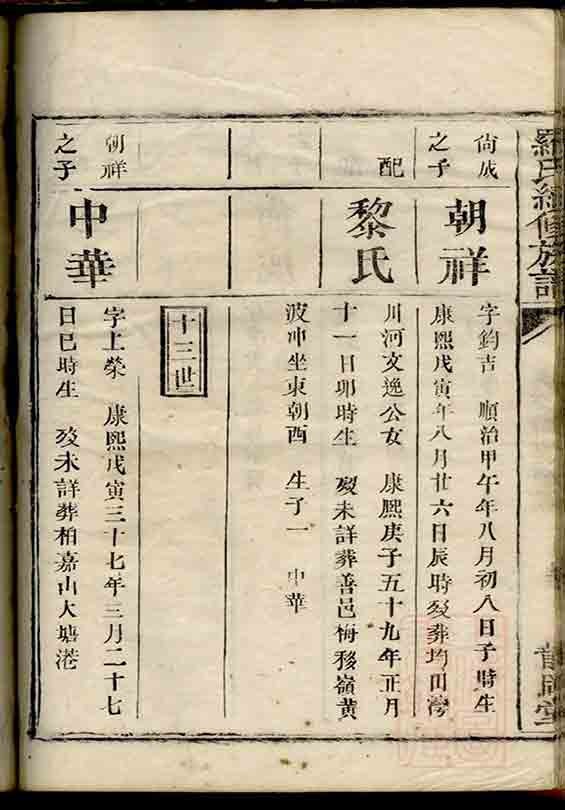 羅氏經修族譜
尚成
之子
朝祥
字鈞吉 順治甲午年八月初八日子時生
康熙戊寅年八月廿六日辰時殁葬均田灣
配
黎氏
川河文逸公女 康熙庚子五十九年正月
十一日卯時生 殁未詳葬善邑梅移嶺黄
波冲坐東朝酉 生子一 中華
十三世
朝祥
之子
中華
字上榮 康熙戊寅三十七年三月二十七
日巳時生 殁未詳葬柏嘉山大塘港